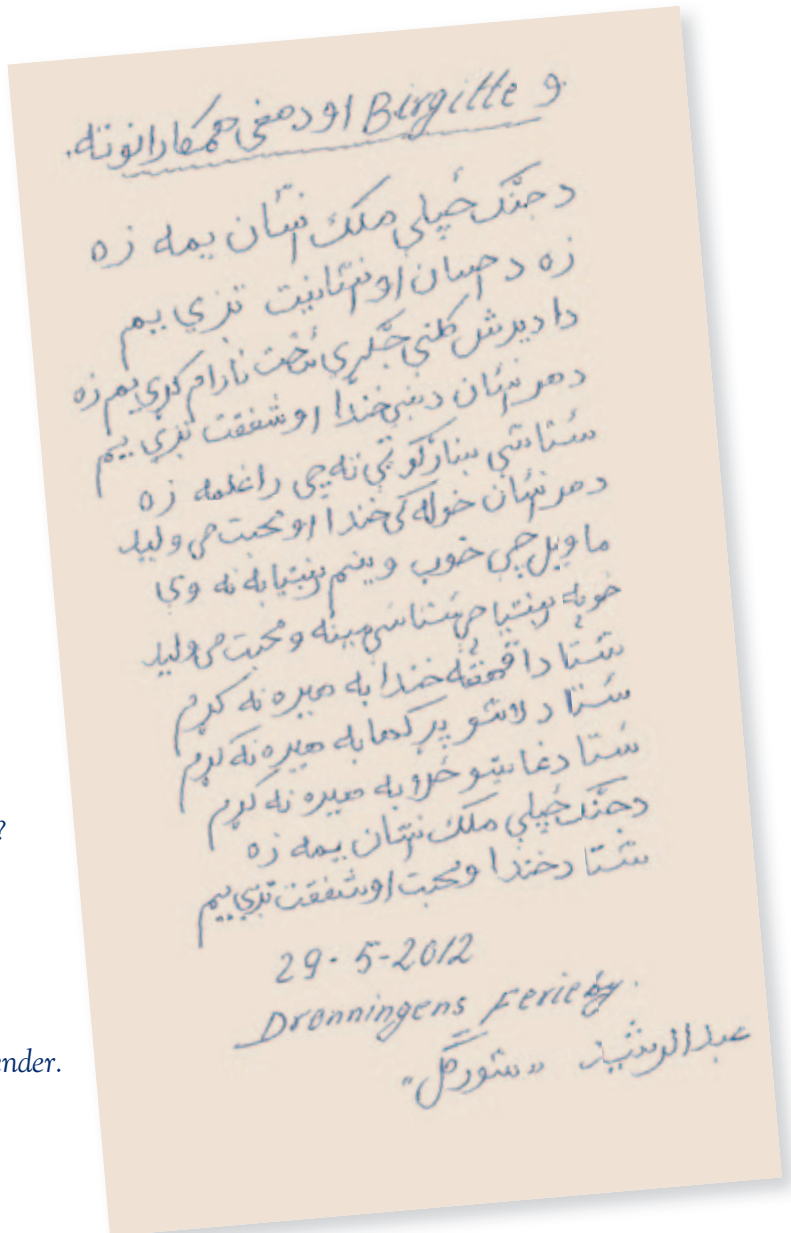 و Birgitte او د هغی همکارانو ته.
د جنګ ځپلی ملک انسان یمه زه
زه د احسان او انسانیت تږی یم
دا دیرش کلنی جګړی سخت ناارام کړی یم زه
د هر انسان د خندا او شفقت تږی یم
ستاسی ښارګوټی ته چی راغلمه زه
د هر انسان خوله کی خندا او محبت می ولید
ما ویل چی خوب وینم رښتیا به نه وی
خو په رښتیا می ستاسی مینه و محبت می ولید
ستا دا قهقهه خندا به هیره نه کړم
ستا د لاسو پړکها به هیره نه کړم
ستا د غاښو ځلا به هیره نه کړم
د جنګ ځپلی ملک انسان یمه زه
ستا د خندا و محبت او شفقت تږی یم
29-5-2012
Dronningens Ferieby.
عبدالرشید "سورګل"
?
ender.